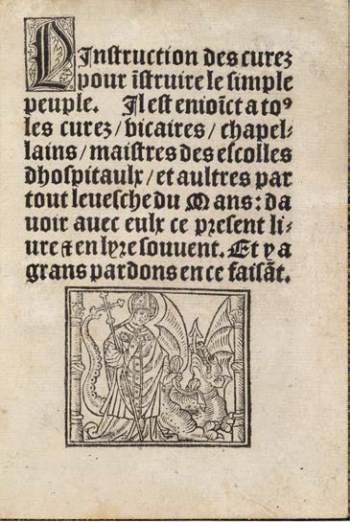 LInstruction des curez
pour ĩstruire le simple
peuple. Il est enioĩct a to⁹
les curez/vicaires/chapel-
lains/maistres des escolles
dhospitaulx/et aultres par
tout leuesche du Mans: da
uoir auec eulx ce present li-
ure ⁊ en lyre souuent. Et y a
grans pardons en ce faisãt.